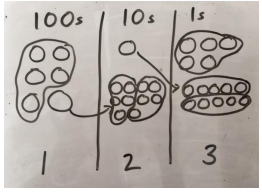 100s 10s 1s
1 2 3